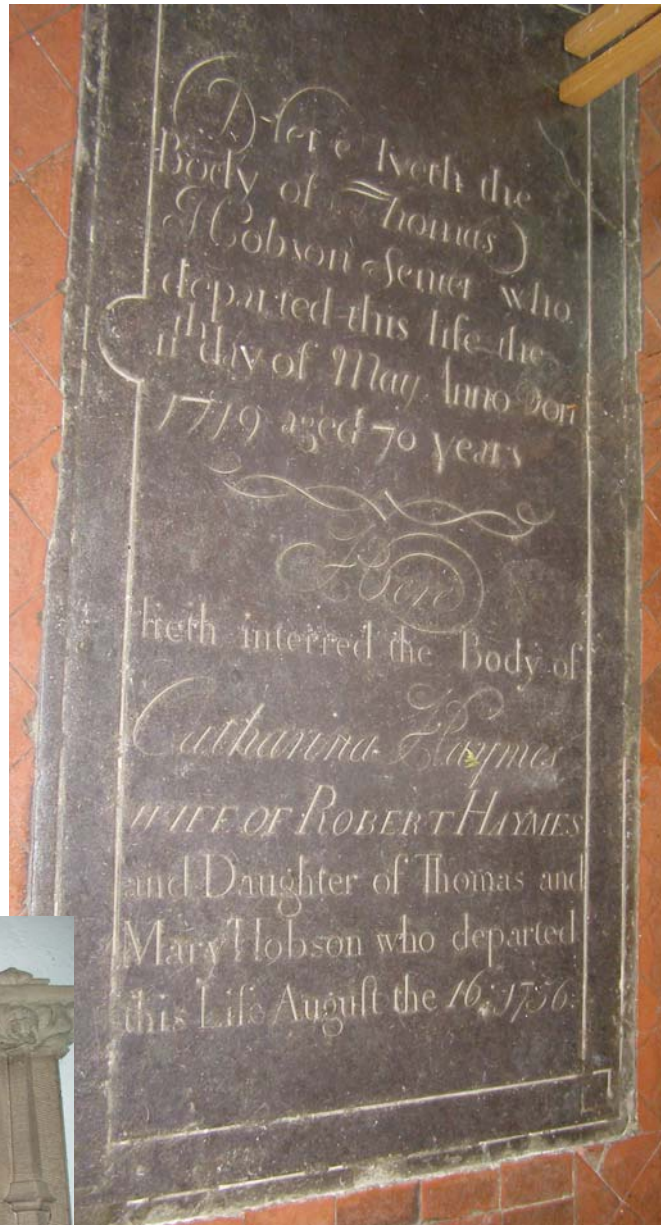 Here lyeth the
Body of Thomas
Hobson Senier who
departed this life the
11th day of May Anno Dom
1719 aged 70 years
Here
lieth interred the Body of
Catharina Haymes
WIFE OF ROBERT HAYMES
and Daughter of Thomas and
Mary Hobson who departed
this Life August the 16, 1756